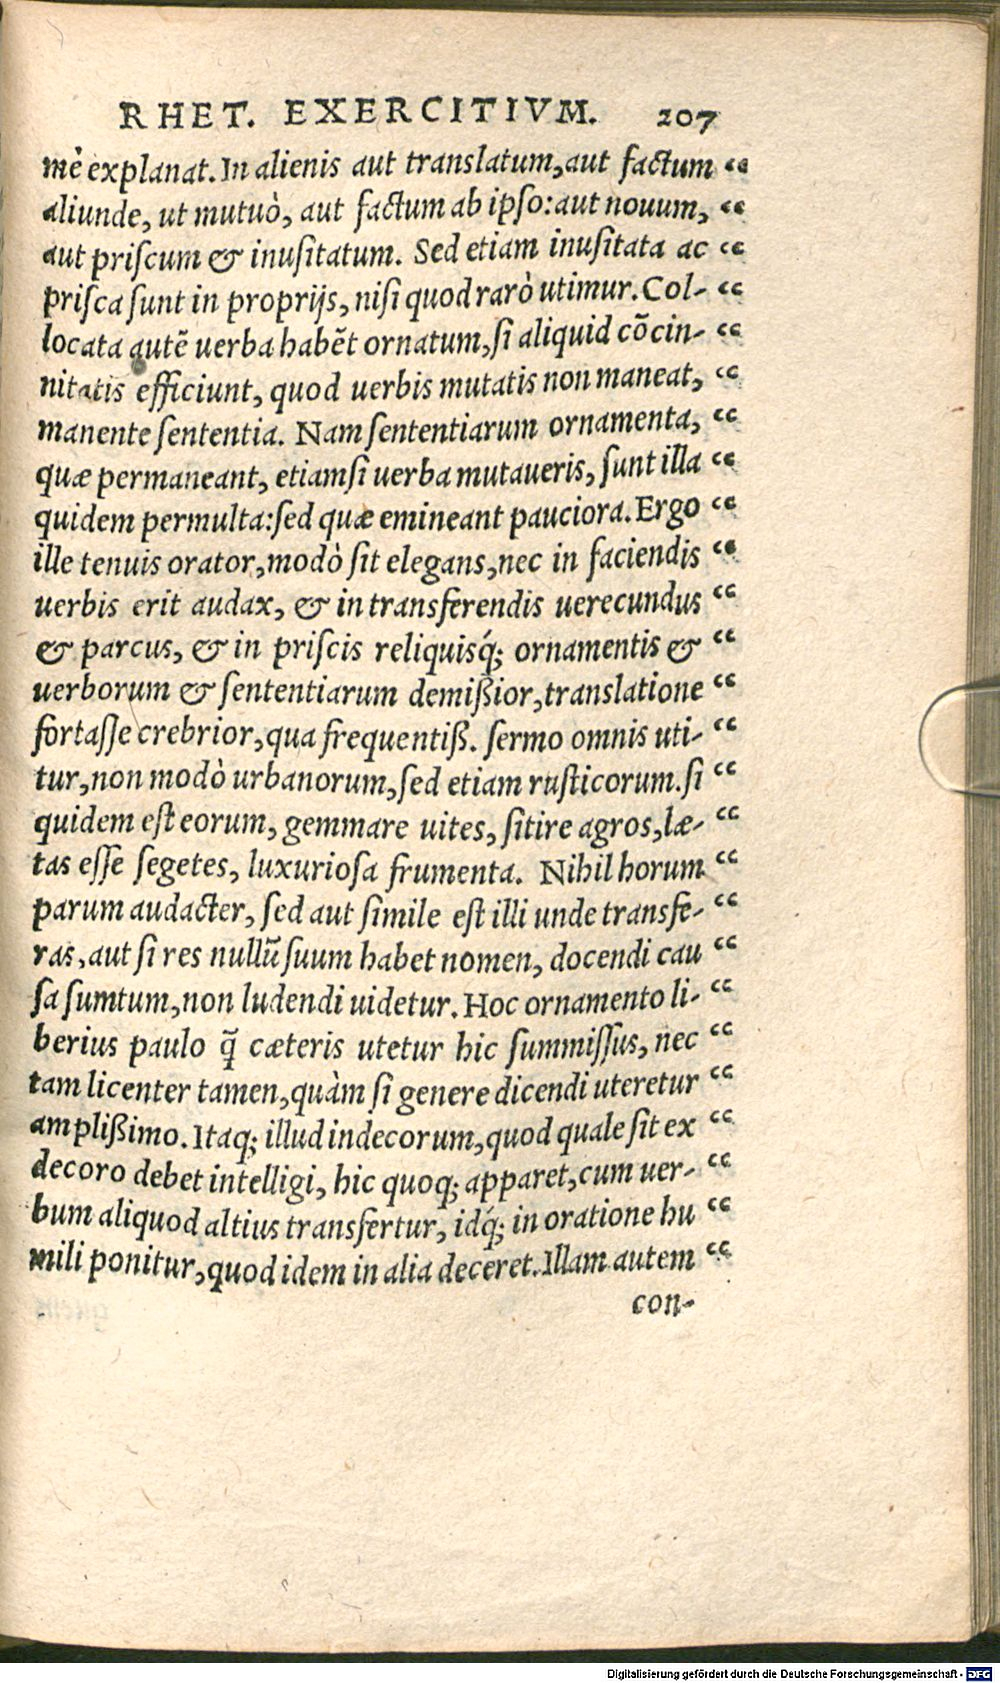 RHET. EXERCITIVM. 207
mē explanat. In alienis aut translatum, aut factum “
aliunde, ut mutuò, aut factum ab ipſo: aut nouum, “
aut priſcum & inuſitatum. Sed etiam inuſitata ac “
priſca ſunt in proprijs, niſi quod rarò utimur. Col- “
locata autē uerba habēt ornatum, ſi aliquid cōcin- “
nitatis efficiunt, quod uerbis mutatis non maneat, “
manente ſententia. Nam ſententiarum ornamenta, “
quæ permaneant, etiamſi uerba mutaueris, ſunt illa “
quidem permulta: ſed quæ emineant pauciora. Ergo “
ille tenuis orator, modò ſit elegans, nec in faciendis “
uerbis erit audax, & in transferendis uerecundus “
& parcus, & in priſcis reliquisq́; ornamentis & “
uerborum & ſententiarum demißior, translatione “
fortaſſe crebrior, qua frequentiß. ſermo omnis uti- “
tur, non modò urbanorum, ſed etiam ruſticorum. ſi “
quidem eſt eorum, gemmare uites, ſitire agros, læ- “
tas eſſe ſegetes, luxurioſa frumenta. Nihil horum “
parum audacter, ſed aut ſimile eſt illi unde transfe- “
ras, aut ſi res nullū ſuum habet nomen, docendi cau “
ſa ſumtum, non ludendi uidetur. Hoc ornamento li- “
berius paulo q̃ cæteris utetur hic ſummiſſus, nec “
tam licenter tamen, quàm ſi genere dicendi uteretur “
amplißimo. Itaq; illud indecorum, quod quale ſit ex “
decoro debet intelligi, hic quoq; apparet, cum uer- “
bum aliquod altius transfertur, idq́; in oratione hu “
mili ponitur, quod idem in alia deceret. Illam autem “
con-
Digitalisierung gefördert durch die Deutsche Forschungsgemeinschaft - DFG